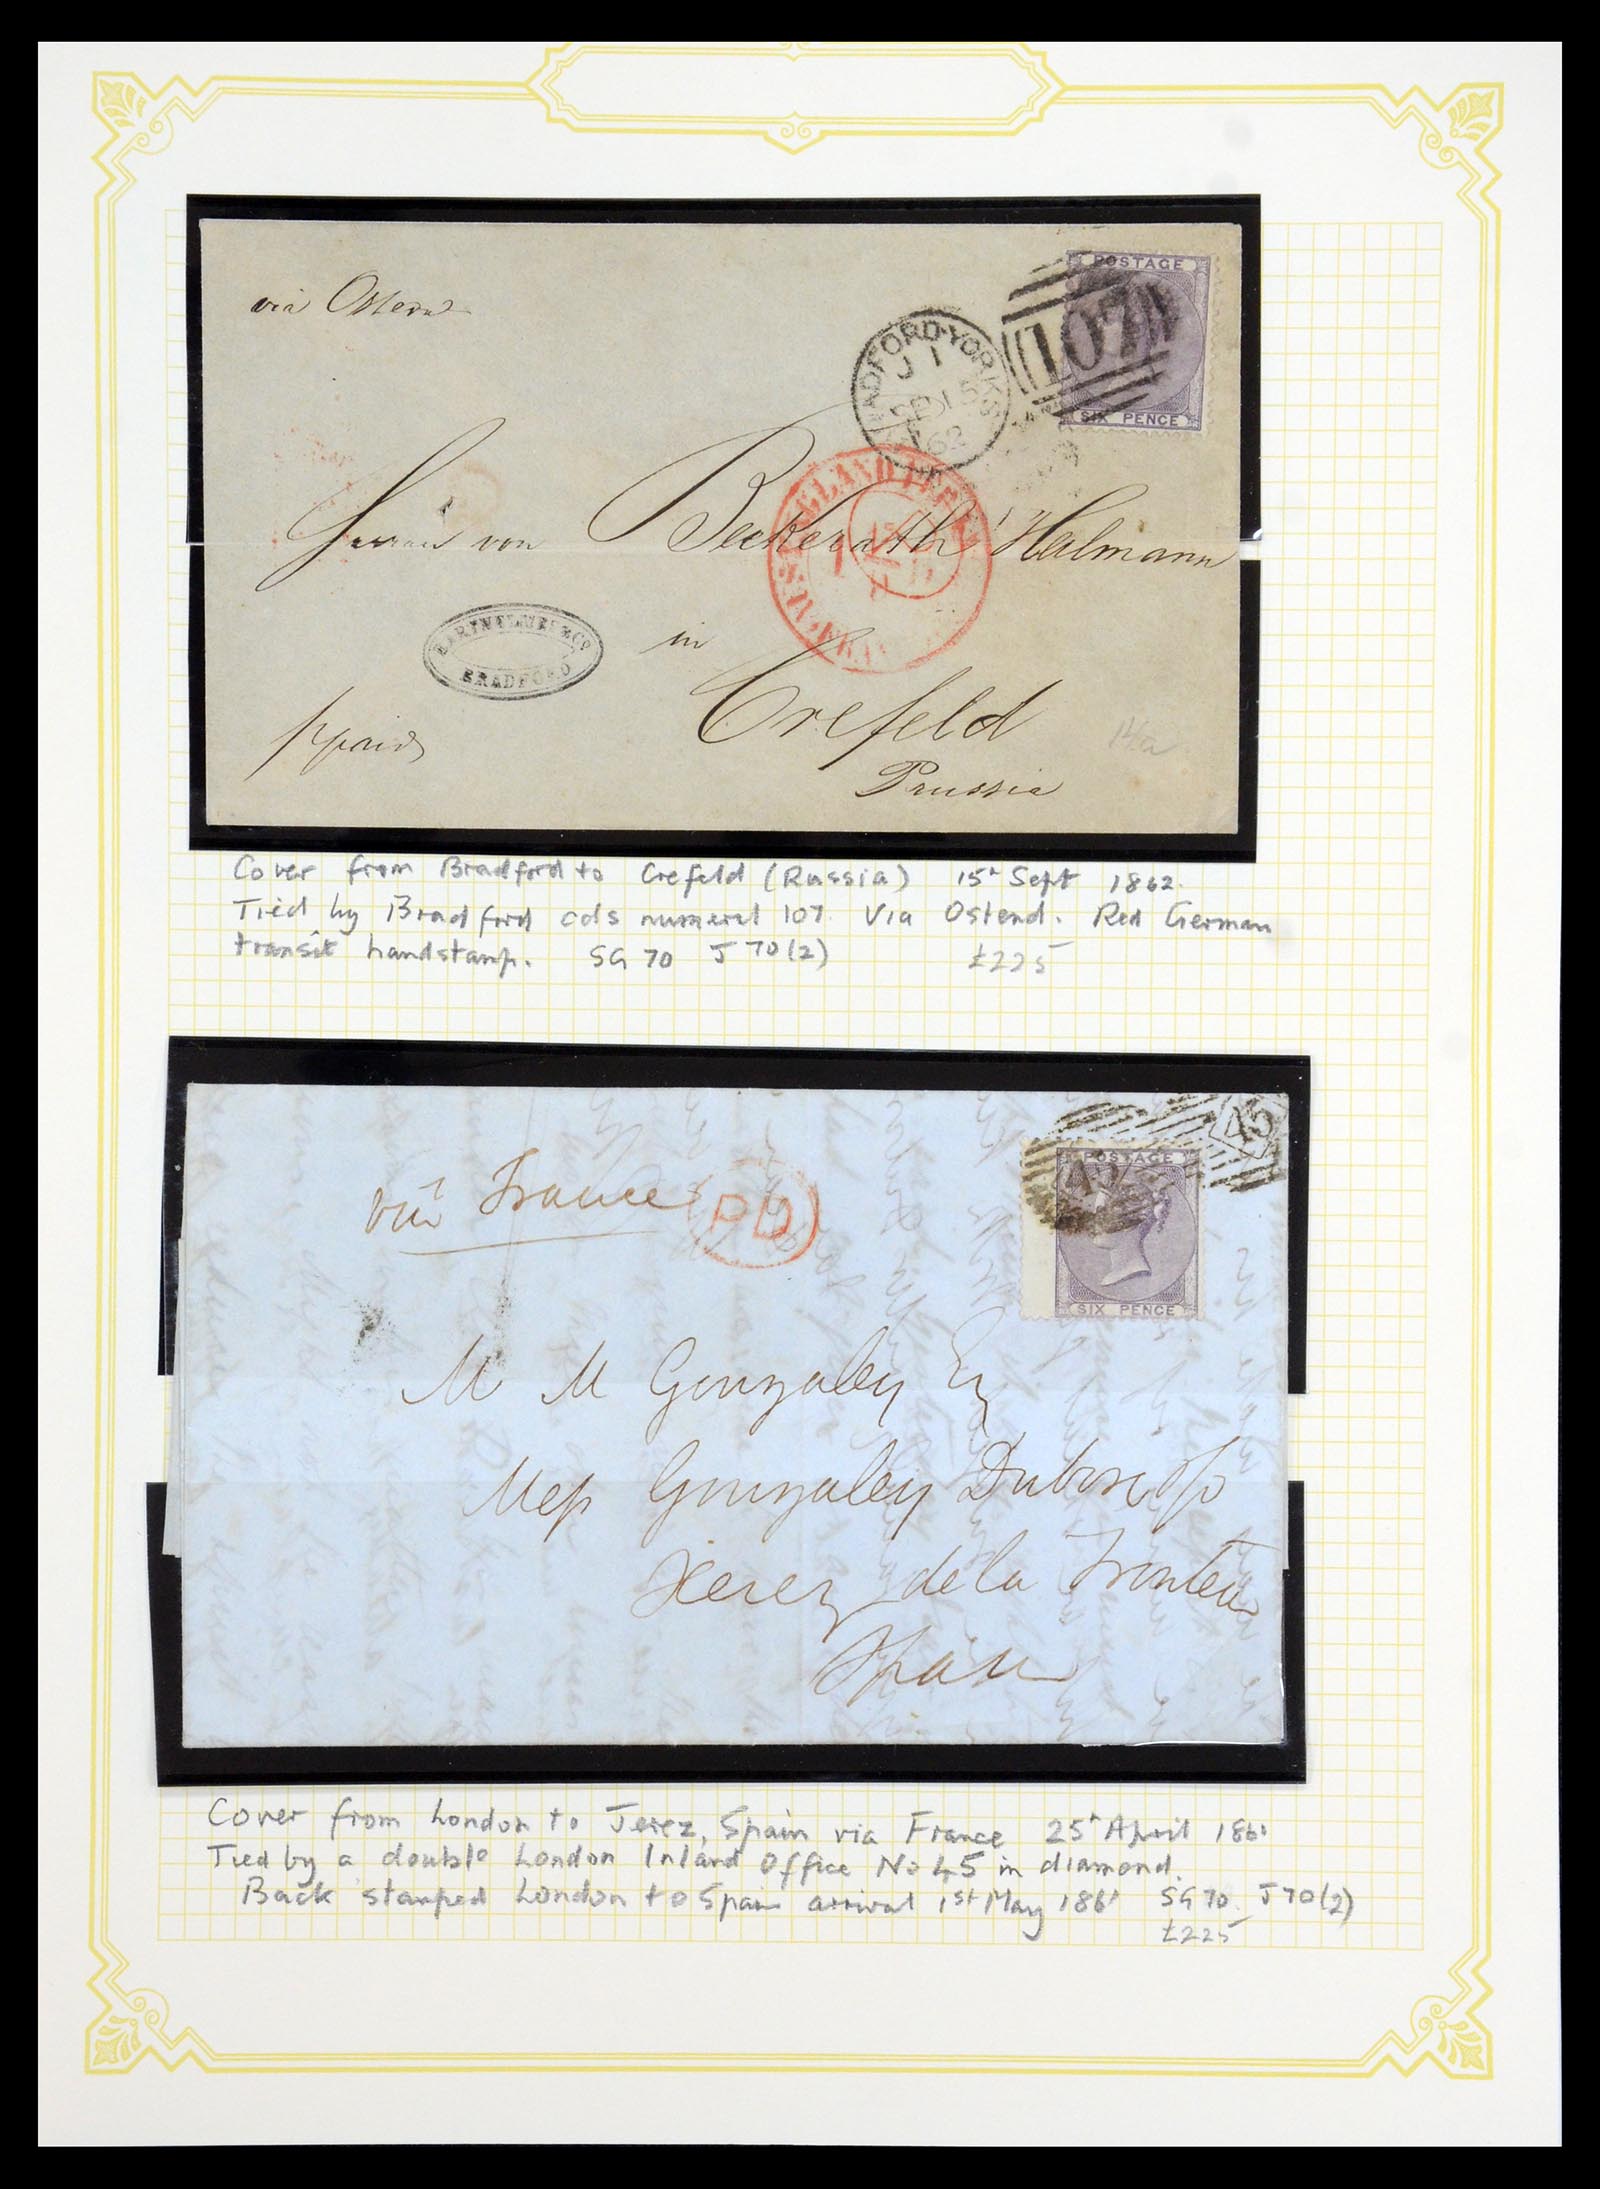 via Ostend
BRADFORD·YORKS
J 1
SP 15
62
107
POSTAGE
SIX PENCE
Herren von Beckerath Heilmann
BRADFORD
in
Crefeld
Prussia
ppaid
Cover from Bradford to Crefeld (Russia) 15h Sept 1862.
Tied by Bradford cds numeral 107. Via Ostend. Red German
transit handstamp. SG 70 J 70(2) £225
via France
PD
45
45
POSTAGE
SIX PENCE
M M Gonzalez Eq
Mess Gonzalez Dubosc & Co
Xerez de la Frontera
Spain
Cover from London to Jerez, Spain via France 25h April 1861
Tied by a double London Inland Office No 45 in diamond.
Back stamped London to Spain arrival 1st May 1861 SG 70. J 70(2)
£225